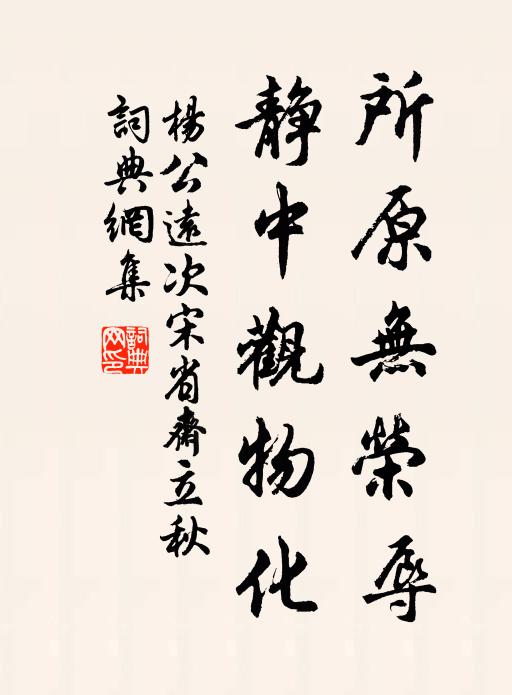 所原無榮辱
靜中觀物化
楊公遠次宋省齋立秋
詞典網集
詞典網印